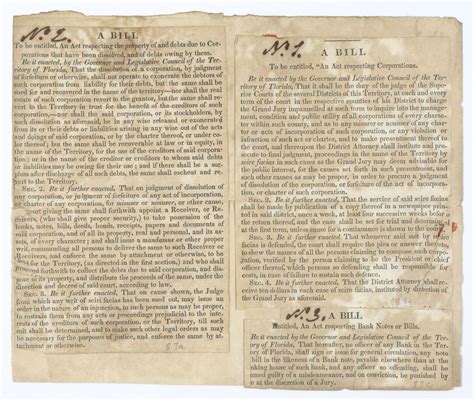 No. 2.
A BILL
To be entitled, An Act respecting the property of and debts due to Cor-
porations that have been dissolved, and of debts owing by them.
Be it enacted by the Governor and Legislative Council of the Territory
of Florida, That the dissolution of a corporation, by judgment
of forfeiture or otherwise, shall not operate to exonerate the debtors
of such corporation from liability for their debts, but the same shall
be for and remain in the name of the territory—nor shall the real
estate of such corporation revert to the grantor, but the same shall re-
vert to the Territory in trust for the benefit of the creditors of such
corporation—nor shall the said corporation, or its stockholders, by
such dissolution as aforesaid, be in any wise released or exonerated
from its or their debts or liabilities arising in any wise out of the acts
and doings of said corporation, or by the charter thereof, or under co-
lor thereof; but the same shall be recoverable at law as by others, in
the name of the Territory, for the use of the creditors of such corpo-
ration; or in the name of the creditor or creditors to whom said debts
or liabilities may be owing for their use; and if there shall be a sur-
plus after discharge of all debts, the same shall escheat and revert
to the Territory.
Sec. 2. Be it further enacted, That on judgment of dissolution of
any corporation, or judgment of forfeiture of any act of incorporation,
or any charter of any corporation, for misuser or nonuser, or other cause,
court giving the same shall forthwith appoint a Receiver or Receiv-
ers, (who shall give proper security,) to take possession of the
books, notes, bills, deeds, receipts, papers and documents, and
all the property of said corporation, real and personal, and its as-
sets, of every character; and shall issue a mandamus or other proper
writ, commanding all persons to deliver the same to such Receiver or
Receivers, and enforce the same by attachment or otherwise, to be
by the Territory, (as directed in the first section,) and who shall
proceed to collect the debts due to said corporation, and dis-
pose of its property, and distribute the proceeds of the same, under the
direction and decree of said court, according to law.
Sec. 3. Be it further enacted, That on cause shown, the Judge
from which any writ of scire facias has been sued out, may issue an
order in the nature of an injunction, to such persons as may be proper,
to restrain them from any acts or proceedings prejudicial to the in-
terests of the creditors of such corporation, or the Territory, till such
suit shall be determined, and to make such other legal orders as may
be necessary for the purposes of justice, and enforce the same by at-
tachment or otherwise.
No. 1.
A BILL
To be entitled, "An Act respecting Corporations.
Be it enacted by the Governor and Legislative Council of the Ter-
ritory of Florida, That it shall be the duty of the judges of the Supe-
rior Courts of the several Districts of this Territory, at each and every
term of the court in the respective counties of his District to charge
the Grand Jury impanelled at such term to inquire into the manage-
ment, condition and public utility of all corporations of every character
within such county, and into any violations or abuses of their
acts of incorporation or charter, and to make presentment thereof to
the court, and thereupon the District Attorney shall institute and pro-
secute to final judgment, proceedings in the name of the Territory by
scire facias in such cases as the Grand Jury may deem advisable for
the public interest, for the causes set forth in such presentment, and
such other causes as may be proper, in order to procure a judgment
of dissolution of the corporation, or forfeiture of the act of incorpora-
tion of such corporation.
Sec. 2. Be it further enacted, That the service of said scire facias
shall be made by publication of a copy thereof in a newspaper printed
in said district, once a week, at least four successive weeks before
the return thereof, and the case shall be set for trial and determined at
the first term, unless cause for a continuance is shown to the court.
Sec. 3. Be it further enacted, That whenever said suit by scire
facias, as defended, the court shall require the plea or answer thereto,
to show the names of all the persons claiming to compose such corpo-
ration, verified by the person claiming to be the President or chief
officer thereof, which persons so defending shall be responsible for
costs, in case of failure to sustain such defence.
Sec. 4. Be it further enacted, That the District Attorney shall re-
ceive ten dollars in each case of scire facias, instituted as directed by
the Grand Jury as aforesaid.
No. 3.
A BILL
Entitled, An Act respecting Bank Notes or Bills.
Be it enacted by the Governor and Legislative Council of the Terri-
tory of Florida, That hereafter, no officer of any Bank in the Terri-
tory of Florida, shall sign or issue for general circulation, any note or
bill in the likeness of a Bank note, payable elsewhere than at the
banking house of such Bank, and any officer so offending shall be
deemed guilty of a misdemeanor, and on conviction, be punished by
at the discretion of a Jury.